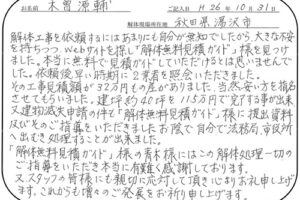 お名前 木曽源輔 ご記入日 H26年10月31日
解体現場所在地 秋田県湯沢市
解体工事を依頼するにはあまりにも自分が無知でしたから大きな不安
を持ちつつWebサイトを探し「解体無料見積ガイド」様を見つけ
ました。本当に無料で見積していただけるとは思いませんでし
た。依頼後早い時期に2業者を照会いただきました。
その工事見積額が32万円もの差がありました。当然安い方を指名
させてもらいました。建坪約40坪を115万で完了する事が出来
又建物滅失申請の件も「解体無料見積ガイド」様に提出資料
及びそのご指導をいただきましたお陰で自分で法務局、市役所
へ出むき処理することが出来ました。
「解体無料見積ガイド」様の青木様にはこの解体処理一切の
ご指導をいただき本当に有難く感謝しております。
又スタッフの皆様にも親切に応対して頂き心よりお礼申し上げ
ます。これからも増々のご発展をお祈り申し上げます。